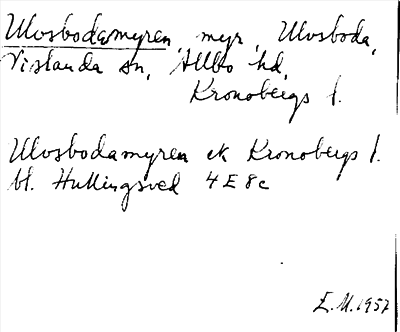 Ulvsbodamyren, myr, Ulvsboda,
Vislanda sn, Allbo hd,
Kronobergs l.
Ulvsbodamyren ek Kronobergs l.
bl. Hullingsved 4E8c
E.M.1957